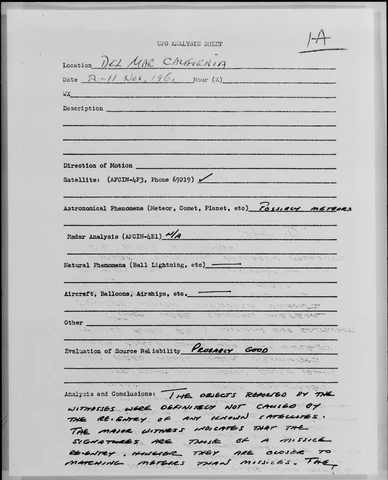 UFO ANALYSIS SHEET
1-A
Location DEL MAR CALIFORNIA
Date 2-11 Nov, 196. Hour (Z)
WX
Description
Direction of Motion
Satellite: (AFCIN-4F3, Phone 69219) ✓
Astronomical Phenomena (Meteor, Comet, Planet, etc) POSSIBLY METEORS
Radar Analysis (AFCIN-4E1) N/A
Natural Phenomena (Ball Lightning, etc)
Aircraft, Balloons, Airships, etc.
Other
Evaluation of Source Reliability PROBABLY GOOD
Analysis and Conclusions: THE OBJECTS REPORTED BY THE
WITNESSES WERE DEFINITELY NOT CAUSED BY
THE RE-ENTRY OF ANY KNOWN SATELLITES.
THE MAJOR WITNESS INDICATES THAT THE
SIGNATURES ARE THOSE OF A MISSILE
RE-ENTRY. HOWEVER THEY ARE CLOSER TO
MATCHING METEORS THAN MISSILES. THE